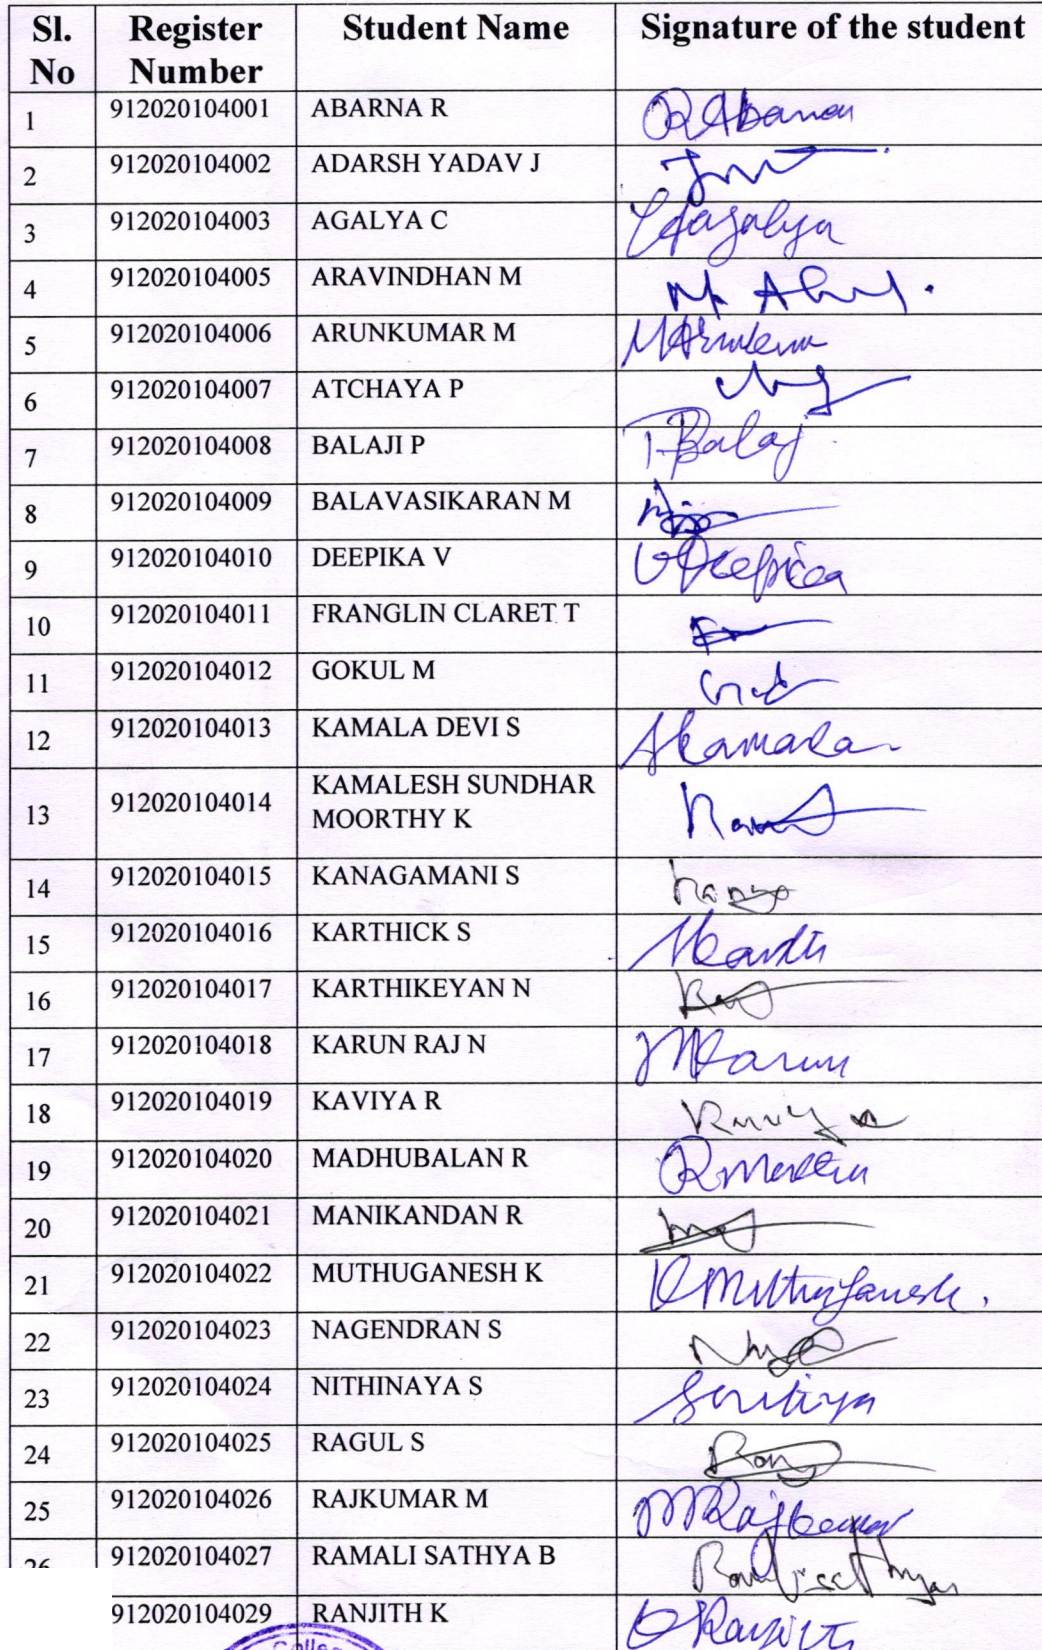 Sl. No Register Number Student Name Signature of the student
1 912020104001 ABARNA R R Abarna
2 912020104002 ADARSH YADAV J
3 912020104003 AGALYA C C Agalya
4 912020104005 ARAVINDHAN M
5 912020104006 ARUNKUMAR M
6 912020104007 ATCHAYA P
7 912020104008 BALAJI P P. Balaji
8 912020104009 BALAVASIKARAN M
9 912020104010 DEEPIKA V V Deepika
10 912020104011 FRANGLIN CLARET T
11 912020104012 GOKUL M
12 912020104013 KAMALA DEVI S S Kamala
13 912020104014 KAMALESH SUNDHAR
MOORTHY K
14 912020104015 KANAGAMANI S
15 912020104016 KARTHICK S
16 912020104017 KARTHIKEYAN N
17 912020104018 KARUN RAJ N N Karun
18 912020104019 KAVIYA R Kaviya
19 912020104020 MADHUBALAN R
20 912020104021 MANIKANDAN R
21 912020104022 MUTHUGANESH K K Muthuganesh.
22 912020104023 NAGENDRAN S
23 912020104024 NITHINAYA S
24 912020104025 RAGUL S
25 912020104026 RAJKUMAR M M Rajkumar
26 912020104027 RAMALI SATHYA B
912020104029 RANJITH K K Ranjith